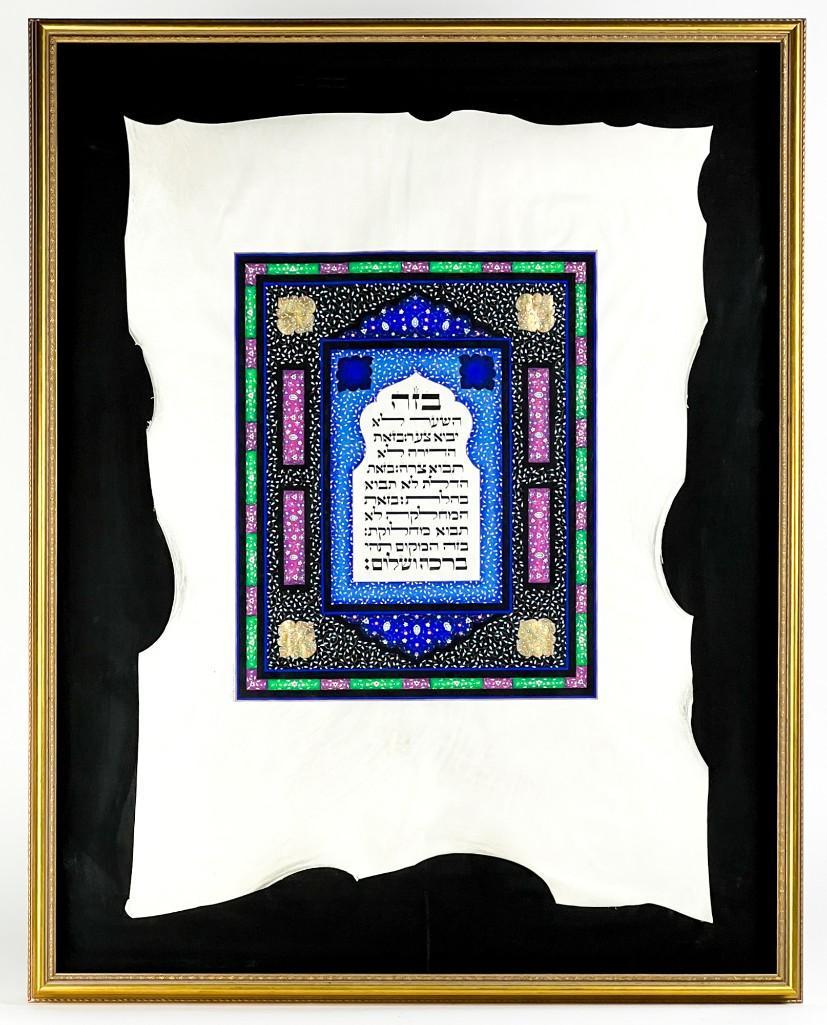 בזה
השער לא
יבוא צער:בזאת
הדירה לא
תבוא צרה:בזאת
הדלת לא תבוא
בהלה:בזאת
המחלקה לא
תבוא מחלוקת:
בזה המקום תהי
ברכה ושלום: